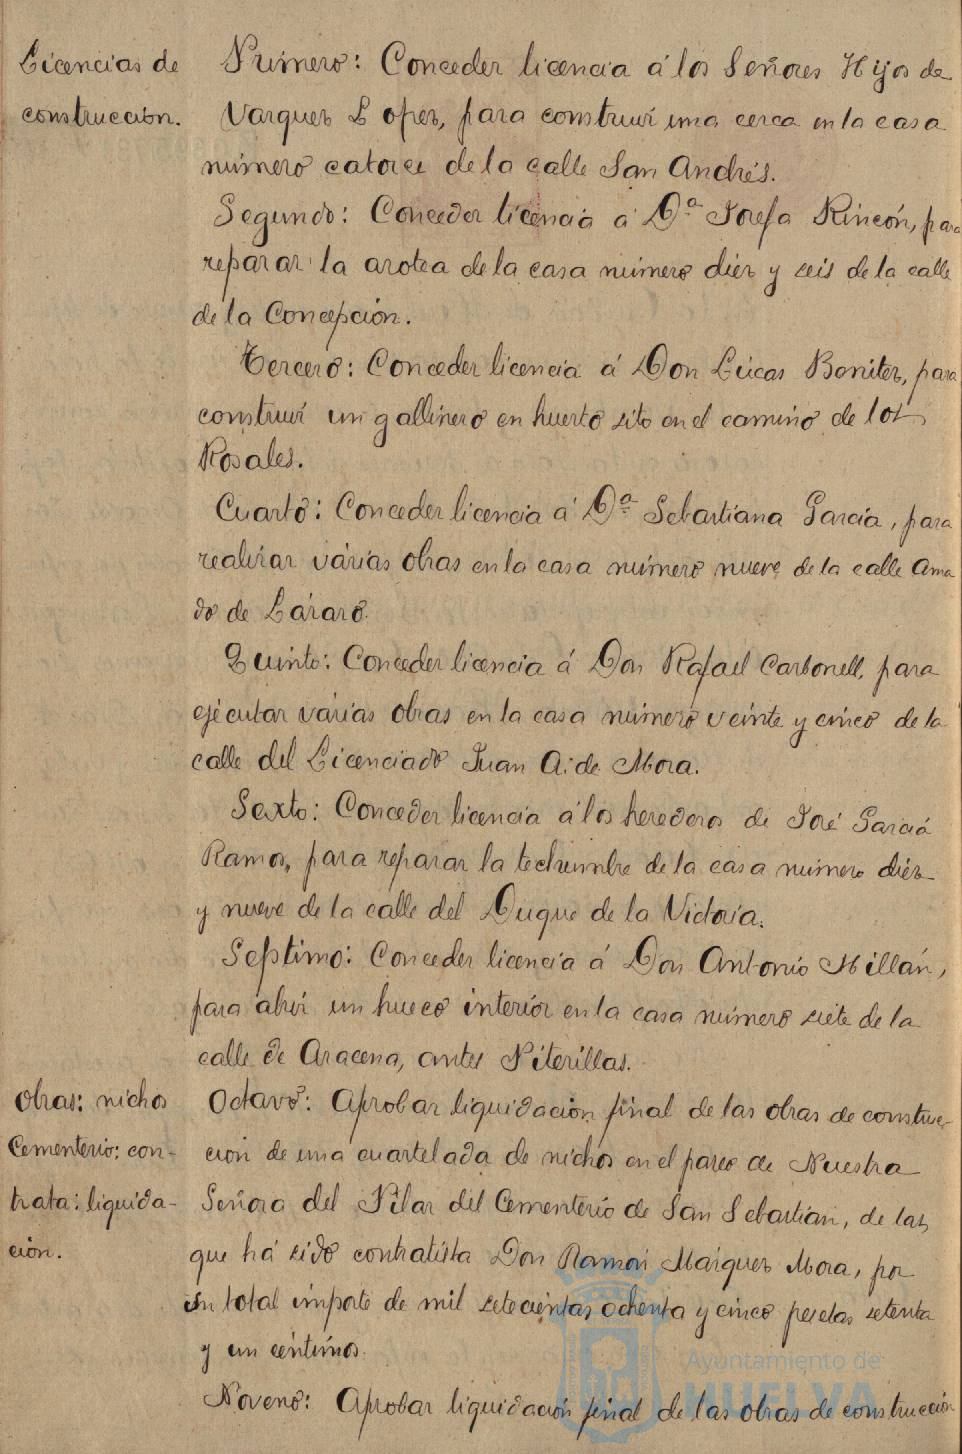 Licencias de
construcción.
Primero: Conceder licencia á los Señores Hijos de
Vazquez Lopez, para construir una cerca en la casa
número catorce de la calle San Andrés.
Segundo: Conceder licencia á Dª Josefa Rincón, para
reparar la azotea de la casa número diez y seis de la calle
de la Concepción.
Tercero: Conceder licencia á Don Lucas Benitez, para
construir un gallinero en huerto sito en el camino de los
Rosales.
Cuarto: Conceder licencia á Dª Sebastiana Garcia, para
realizar várias obras en la casa número nueve de la calle Ama
do de Lázaro.
Quinto: Conceder licencia á Don Rafael Carbonell, para
ejecutar várias obras en la casa número veinte y cinco de la
calle del Licenciado Juan A. de Mora.
Sexto: Conceder licencia á los herederos de José Garcia
Ramos, para reparar la techumbre de la casa número diez
y nueve de la calle del Duque de la Victoria.
Septimo: Conceder licencia á Don Antonio Millán,
para abrir un hueco interior en la casa número siete de la
calle de Aracena, antes Piterillas.
Obras: nichos
Cementerio: con-
trata: liquida-
ción.
Octavo: Aprobar liquidación final de las obras de construc-
ción de una cuartelada de nichos en el paseo de Nuestra
Señora del Pilar del Cementerio de San Sebastian, de las
que há sido contratista Don Ramón Márquez Mora, por
un total importe de mil setecientas ochenta y cinco pesetas setenta
y un céntimos.
Noveno: Aprobar liquidación final de las obras de construcción
Ayuntamiento de
HUELVA